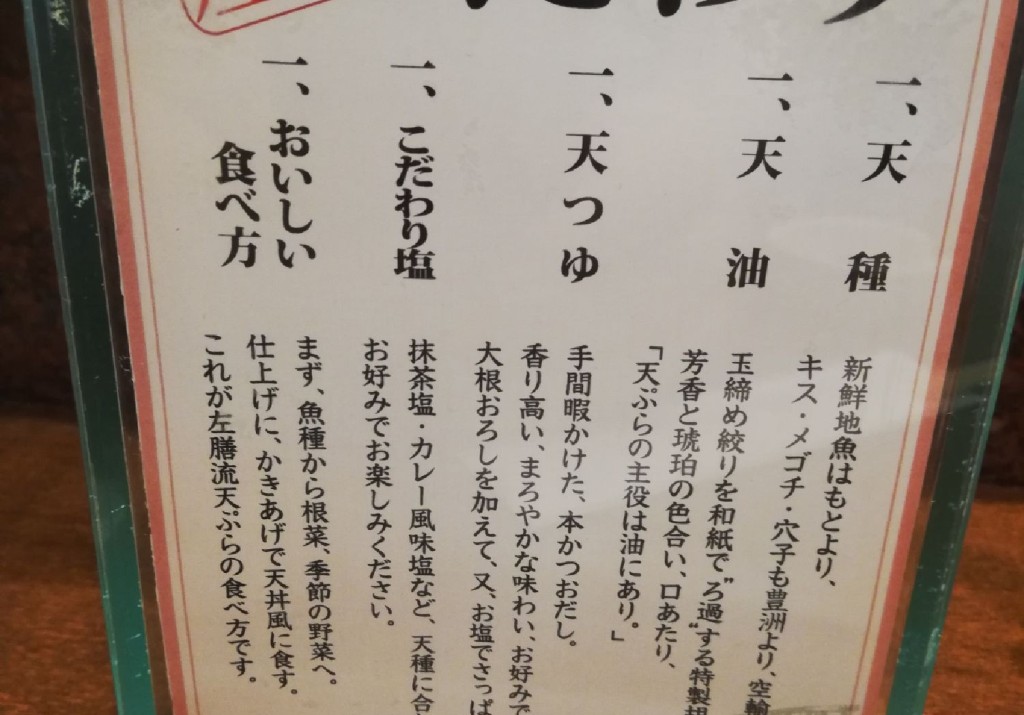 一、天種
新鮮地魚はもとより、
キス・メゴチ・穴子も豊洲より、空輸
一、天油
玉締め絞りを和紙で”ろ過”する特製胡
芳香と琥珀の色合い、口あたり、
「天ぷらの主役は油にあり。」
一、天つゆ
手間暇かけた、本かつおだし。
香り高い、まろやかな味わい、お好みで
大根おろしを加えて、又、お塩でさっぱ
一、こだわり塩
抹茶塩・カレー風味塩など、天種に合
お好みでお楽しみください。
一、おいしい
食べ方
まず、魚種から根菜、季節の野菜へ。
仕上げに、かきあげで天丼風に食す。
これが左膳流天ぷらの食べ方です。